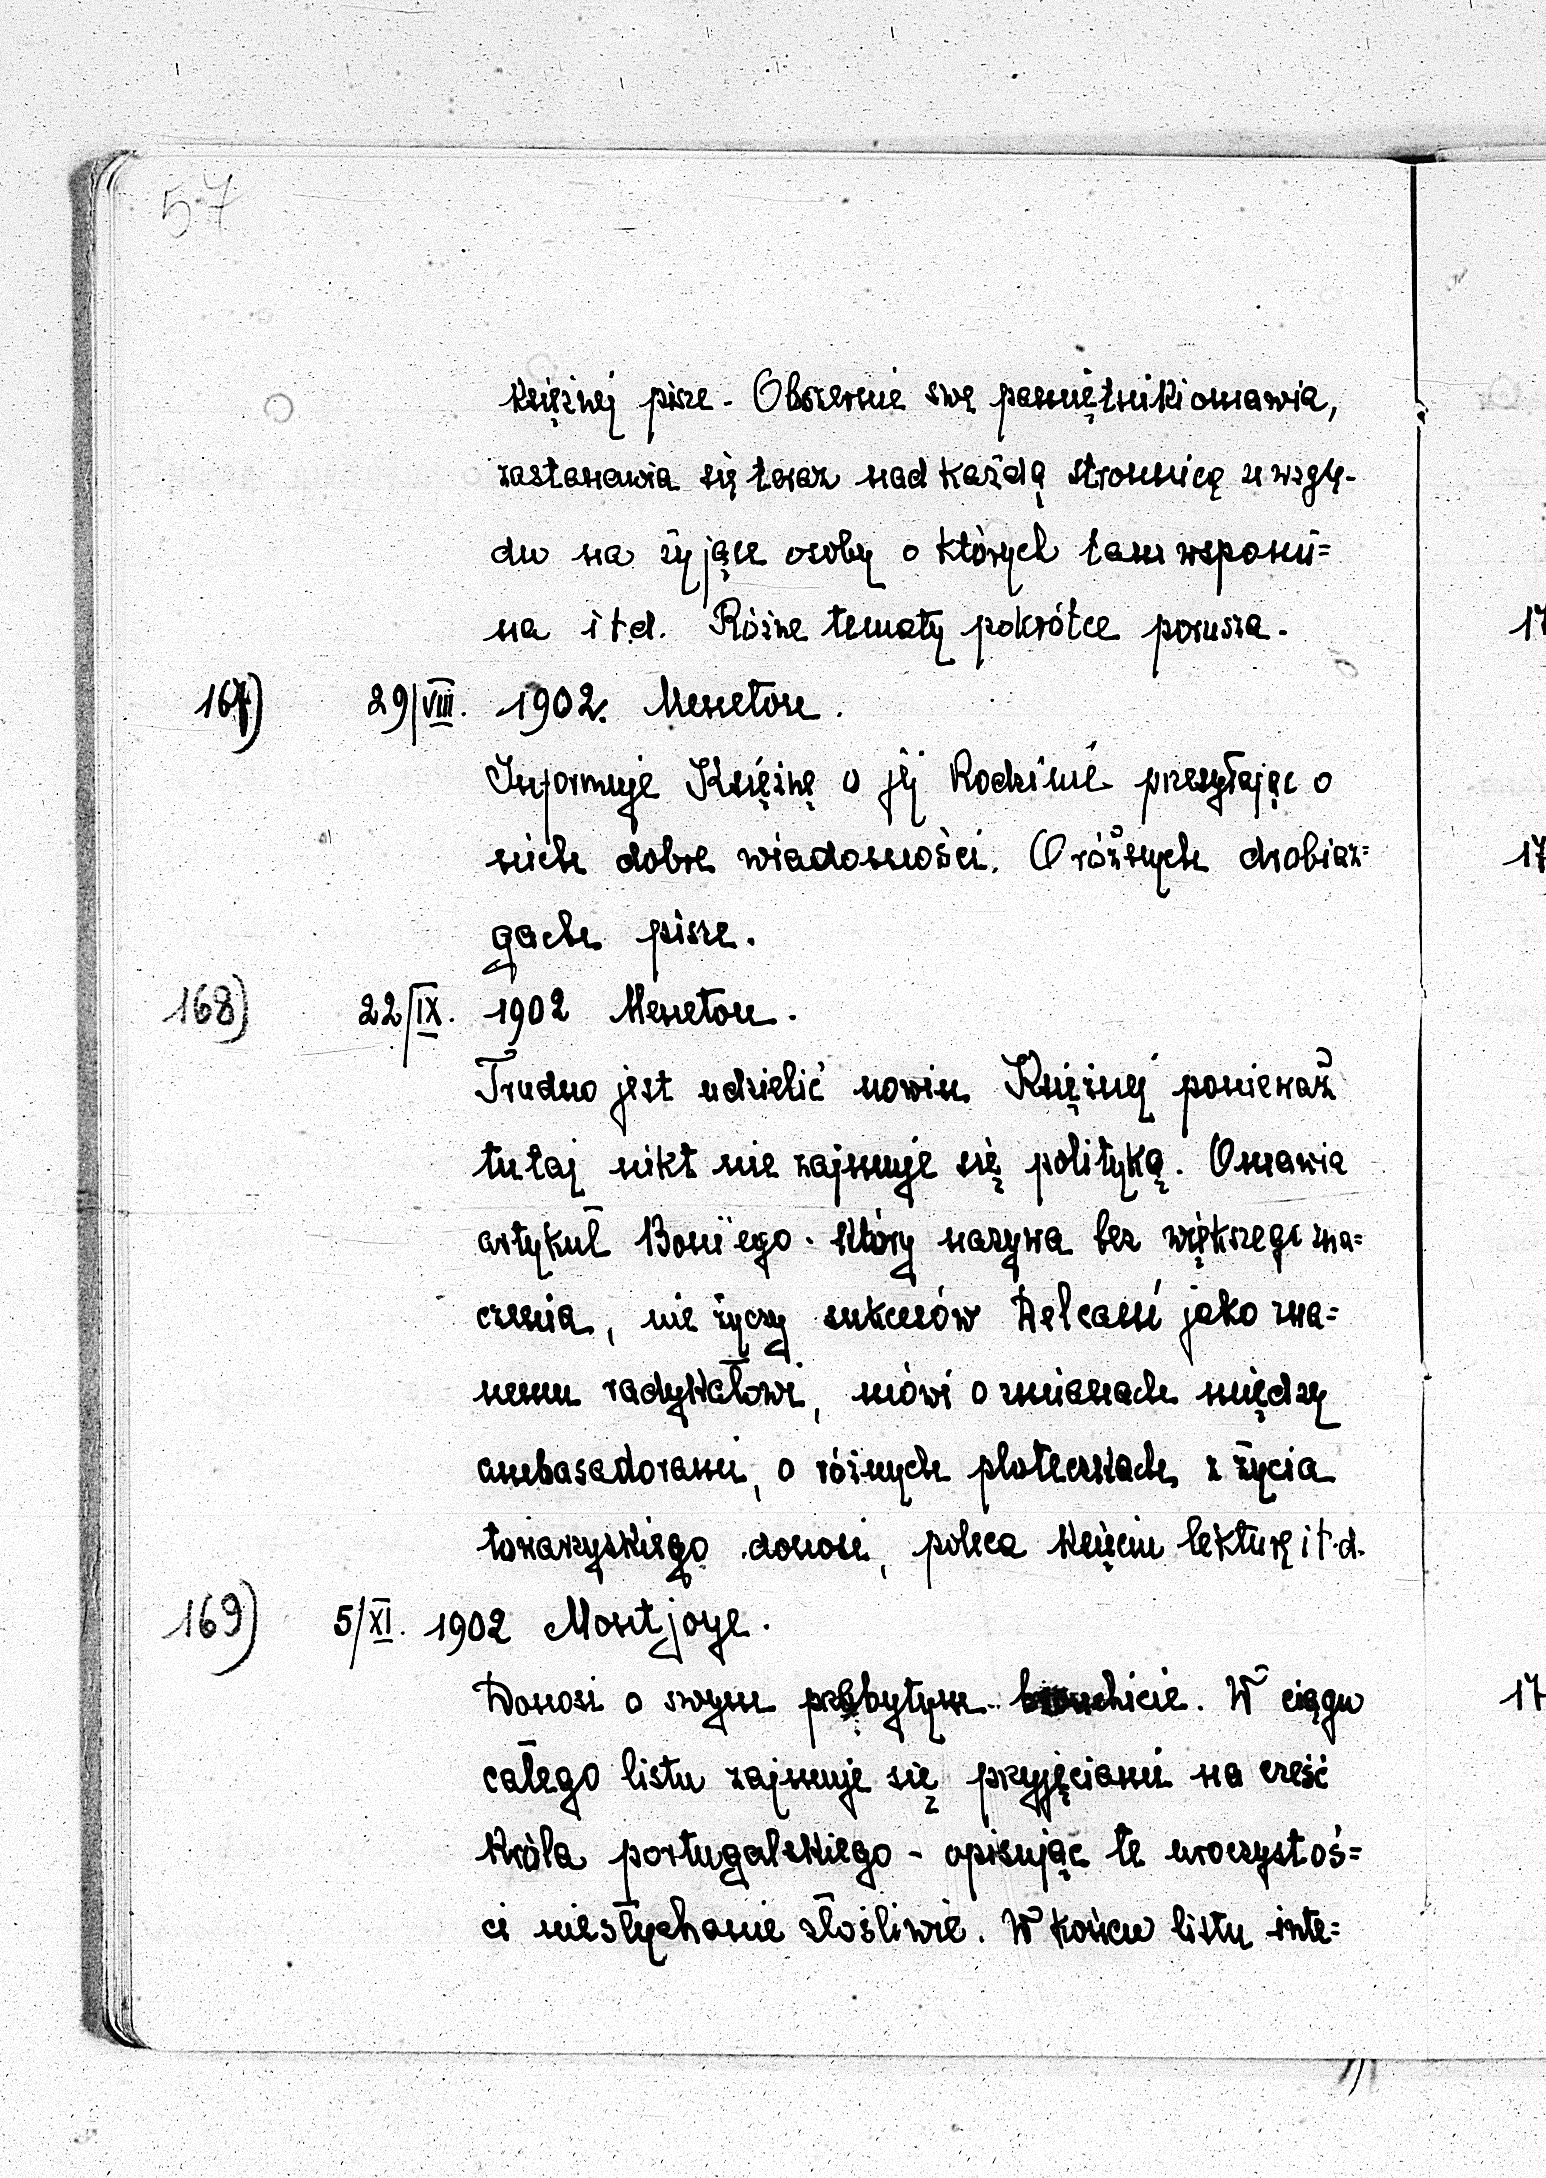 57
Księżnej pisze - Obszernie swe pamiętniki omawia,
zastanawia się teraz nad każdą stronnicą z wzglę-
du na żyjące osoby o których tam wspomi=
na i t.d. Różne tematy pokrótce porusza.
167) 29/VIII. 1902. Menetou.
Informuje Księżnę o jej Rodzinie przesyłając o
nich dobre wiadomości. O różnych drobiaz=
gach pisze.
168) 22/IX. 1902 Menetou.
Trudno jest udzielić nowin Księżnej ponieważ
tutaj nikt nie zajmuje się polityką. Omawia
artykuł Boni'ego - który nazywa bez większego zna=
czenia, nie życzy sukcesów Delcassé jako zna=
nemu radykałowi, mówi o zmianach między
ambasadorami, o różnych ploteczkach z życia
towarzyskiego donosi, poleca Księciu lekturę i t.d.
169) 5/XI. 1902 Montjoye.
Donosi o swym przebytym bronchicie. W ciągu
całego listu zajmuje się przyjęciami na cześć
Króla portugalskiego - opisując te uroczystoś=
ci niesłychanie złośliwie. W końcu listu inte=